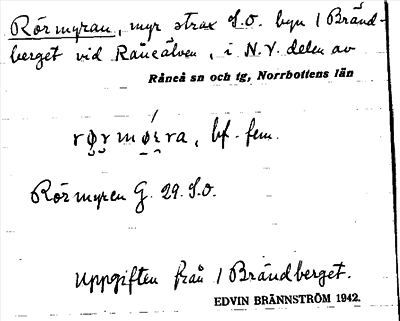 Rörmyran, myr strax S.O. byn / Bränd-
berget vid Råneälven, i N.V. delen av
Råneå sn och tg, Norrbottens län
bf. fem.
Rörmyren G. 29. S.O.
Uppgiften från / Brändberget.
EDVIN BRÄNNSTRÖM 1942.